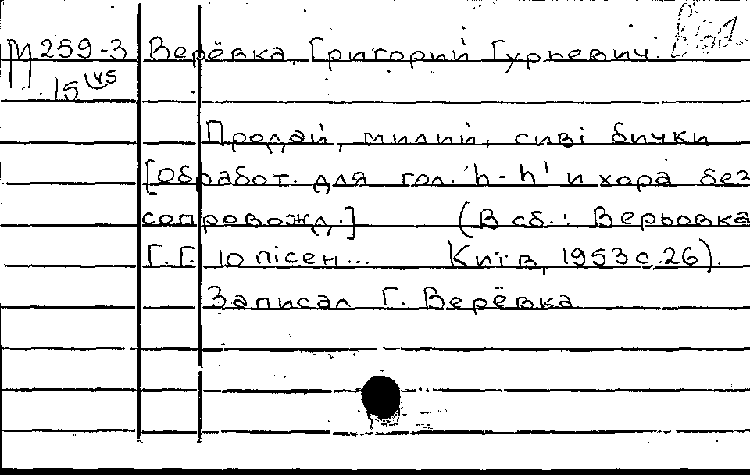 М 259-3 Верёвка, Григорий Гурьевич.
15
Продай, милий, сиві бички
[Обработ. для гол. 'h-h' и хора без
сопровожд.] (В сб.: Верьовка
Г.Г. 10 пісен... Київ, 1953 с.26).
Записал Г. Верёвка